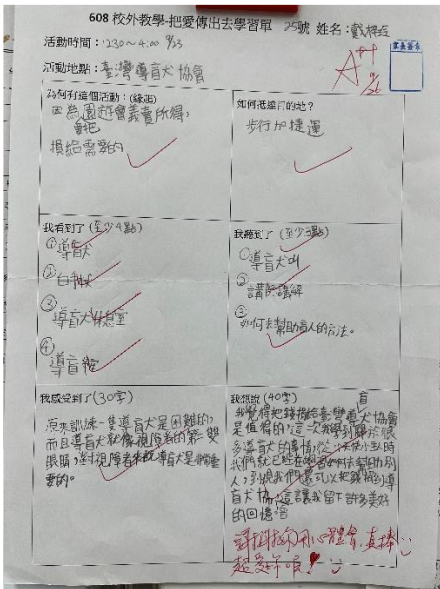 608 校外教學-把愛傳出去學習單 25號 姓名：戴
活動時間：1230~4:00 9/23
活動地點：臺灣導盲犬協會
為何有這個活動：(緣起)
因為園遊會義賣所得，
會把
捐給需要的
如何抵達目的地？
步行加捷運
我看到了 (至少4點)
①導盲犬
②白手杖
③導盲犬休息室
④導盲鞍
我聽到了 (至少3點)
①導盲犬叫
②講師講解
③如何去幫助盲人的方法。
我感受到了(30字)
原來訓練一隻導盲犬是困難的，
而且導盲犬就像視障者的第二雙
眼睛，對視障者來說導盲犬是非常重
要的。
我想說 (40字)
我覺得把錢捐給臺灣導盲犬協會
是值得的，這一次我學到關於很
多導盲犬的事情，從
我們就已經在
人，到現在我們還可以把錢捐到導
盲犬協會，這讓我留下許多美好
的回憶
謝謝你用心體會，真棒
超愛你唷！